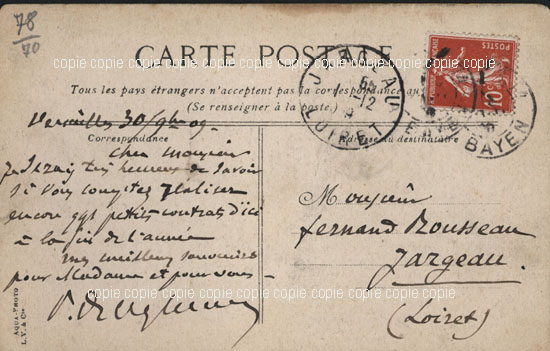 78
70
CARTE POSTALE
Tous les pays étrangers n'acceptent pas la correspondance au
(Se renseigner à la poste.)
Correspondance
Adresse du destinataire
Versailles 30/9bre 09
Cher Monsieur
Je serai très heureux de savoir
si vous comptez réaliser
encore qqs petits contrats d'ici
à la fin de l'année
mes meilleurs souvenirs
pour Madame et pour vous
Monsieur
Fernand Rousseau
Jargeau.
(Loiret)
JARGEAU
LOIRET
BAYEN
POSTES
10
AQUA-PHOTO
L.V. & Cie
copie copie copie copie copie copie copie copie copie copie copie
copie copie copie copie copie copie copie copie copie copie copie
copie copie copie copie copie copie copie copie copie copie copie